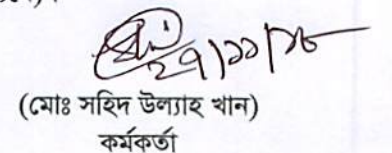 ২৭/১১/১৮
(মোঃ সহিদ উল্যাহ খান)
কর্মকর্তা